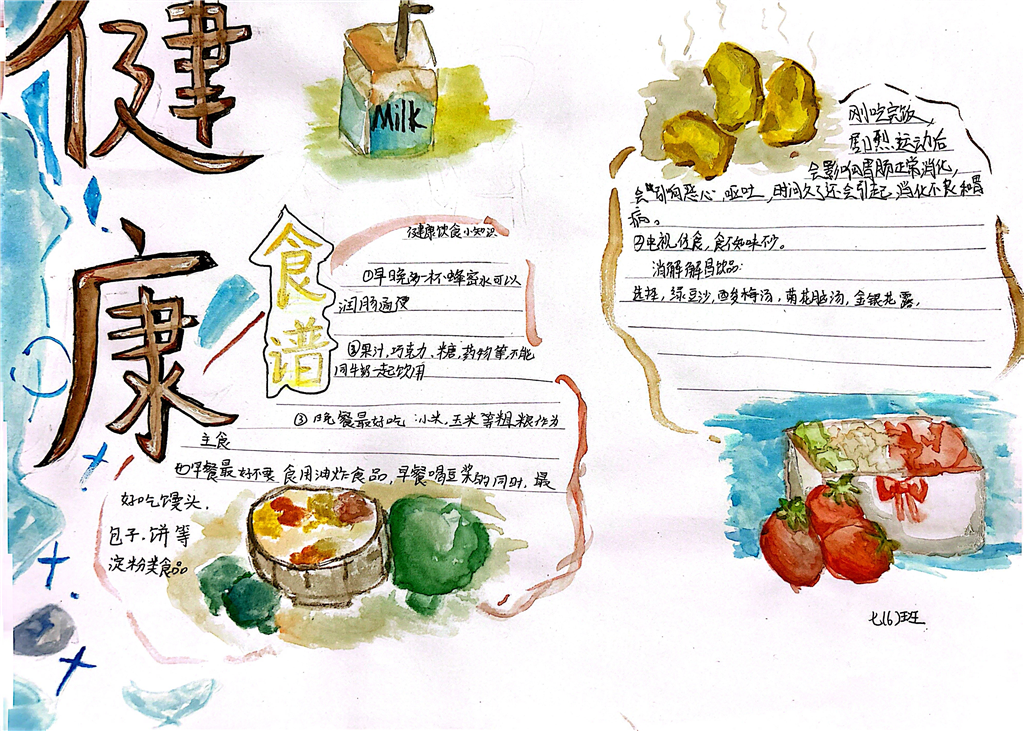 健康
食谱
Milk
健康饮食小知识
①早晚汤一杯蜂蜜水可以
润肠通便
②果汁,巧克力、糖,药物等,不能
同牛奶一起饮用
③晚餐最好吃 小米,玉米等粗粮作为
主食
④早餐最好不要 食用油炸食品,早餐喝豆浆的同时,最
好吃馒头,
包子、饼等
淀粉类食品
刚吃完饭,
剧烈运动后
会影响胃肠正常消化,
会影响恶心、呕吐,时间久了还会引起消化不良和胃
病。
电视伴食,食不知味不妙。
消解解暑饮品:
选择,绿豆沙,酸梅汤,菊花脑汤,金银花露,
七(6)班